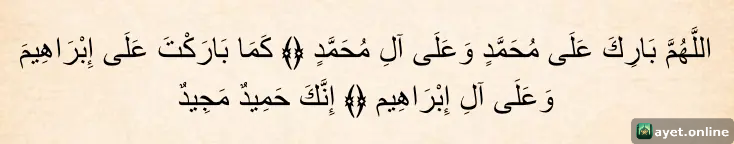 اللَّهُمَّ بَارِكَ عَلَى مُحَمَّدٍ وَعَلَى آلِ مُحَمَّدٍ ﴿﴾ كَمَا بَارَكْتَ عَلَى إِبْرَاهِيمَ
وَعَلَى آلِ إِبْرَاهِيم ﴿﴾ إِنَّكَ حَمِيدٌ مَجِيدٌ
ayet.online